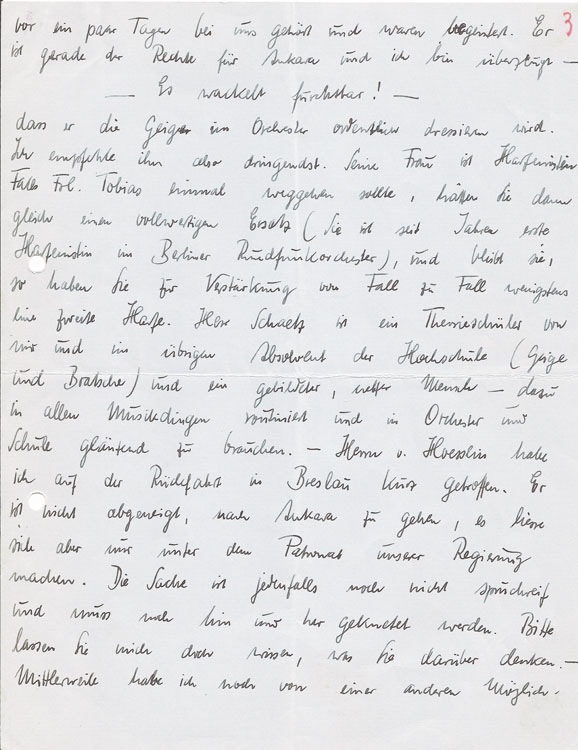 vor ein paar Tagen bei uns gehört und waren begeistert. Er 3
ist gerade der Rechte für Ankara und ich bin überzeugt —
— Es wackelt furchtbar! —
dass er die Geiger im Orchester ordentlich dressieren wird.
Ich empfehle ihn also dringendst. Seine Frau ist Harfenistin
Falls Frl. Tobias einmal weggehen sollte, hätten Sie dann
gleich einen vollwertigen Ersatz (Sie ist seit Jahren erste
Harfenistin im Berliner Rundfunkorchester), und bleibt sie,
so haben Sie zur Verstärkung von Fall zu Fall wenigstens
eine zweite Harfe. Herr Schaetz ist ein Theorieschüler von
mir und im übrigen Absolvent der Hochschule (Geige
und Bratsche) und ein gebildeter, netter Mensch — dazu
in allen Musikdingen routiniert und in Orchester und
Schule glänzend zu brauchen. — Herrn v. Hoesslin habe
ich auf der Rückfahrt in Breslau kurz getroffen. Er
ist nicht abgeneigt, nach Ankara zu gehen, es liesse
sich aber nur unter dem Patronat unserer Regierung
machen. Die Sache ist jedenfalls noch nicht spruchreif
und muss noch hin und her geknetet werden. Bitte
lassen Sie mich doch wissen, was Sie darüber denken. —
Mittlerweile habe ich noch von einer anderen Möglich-